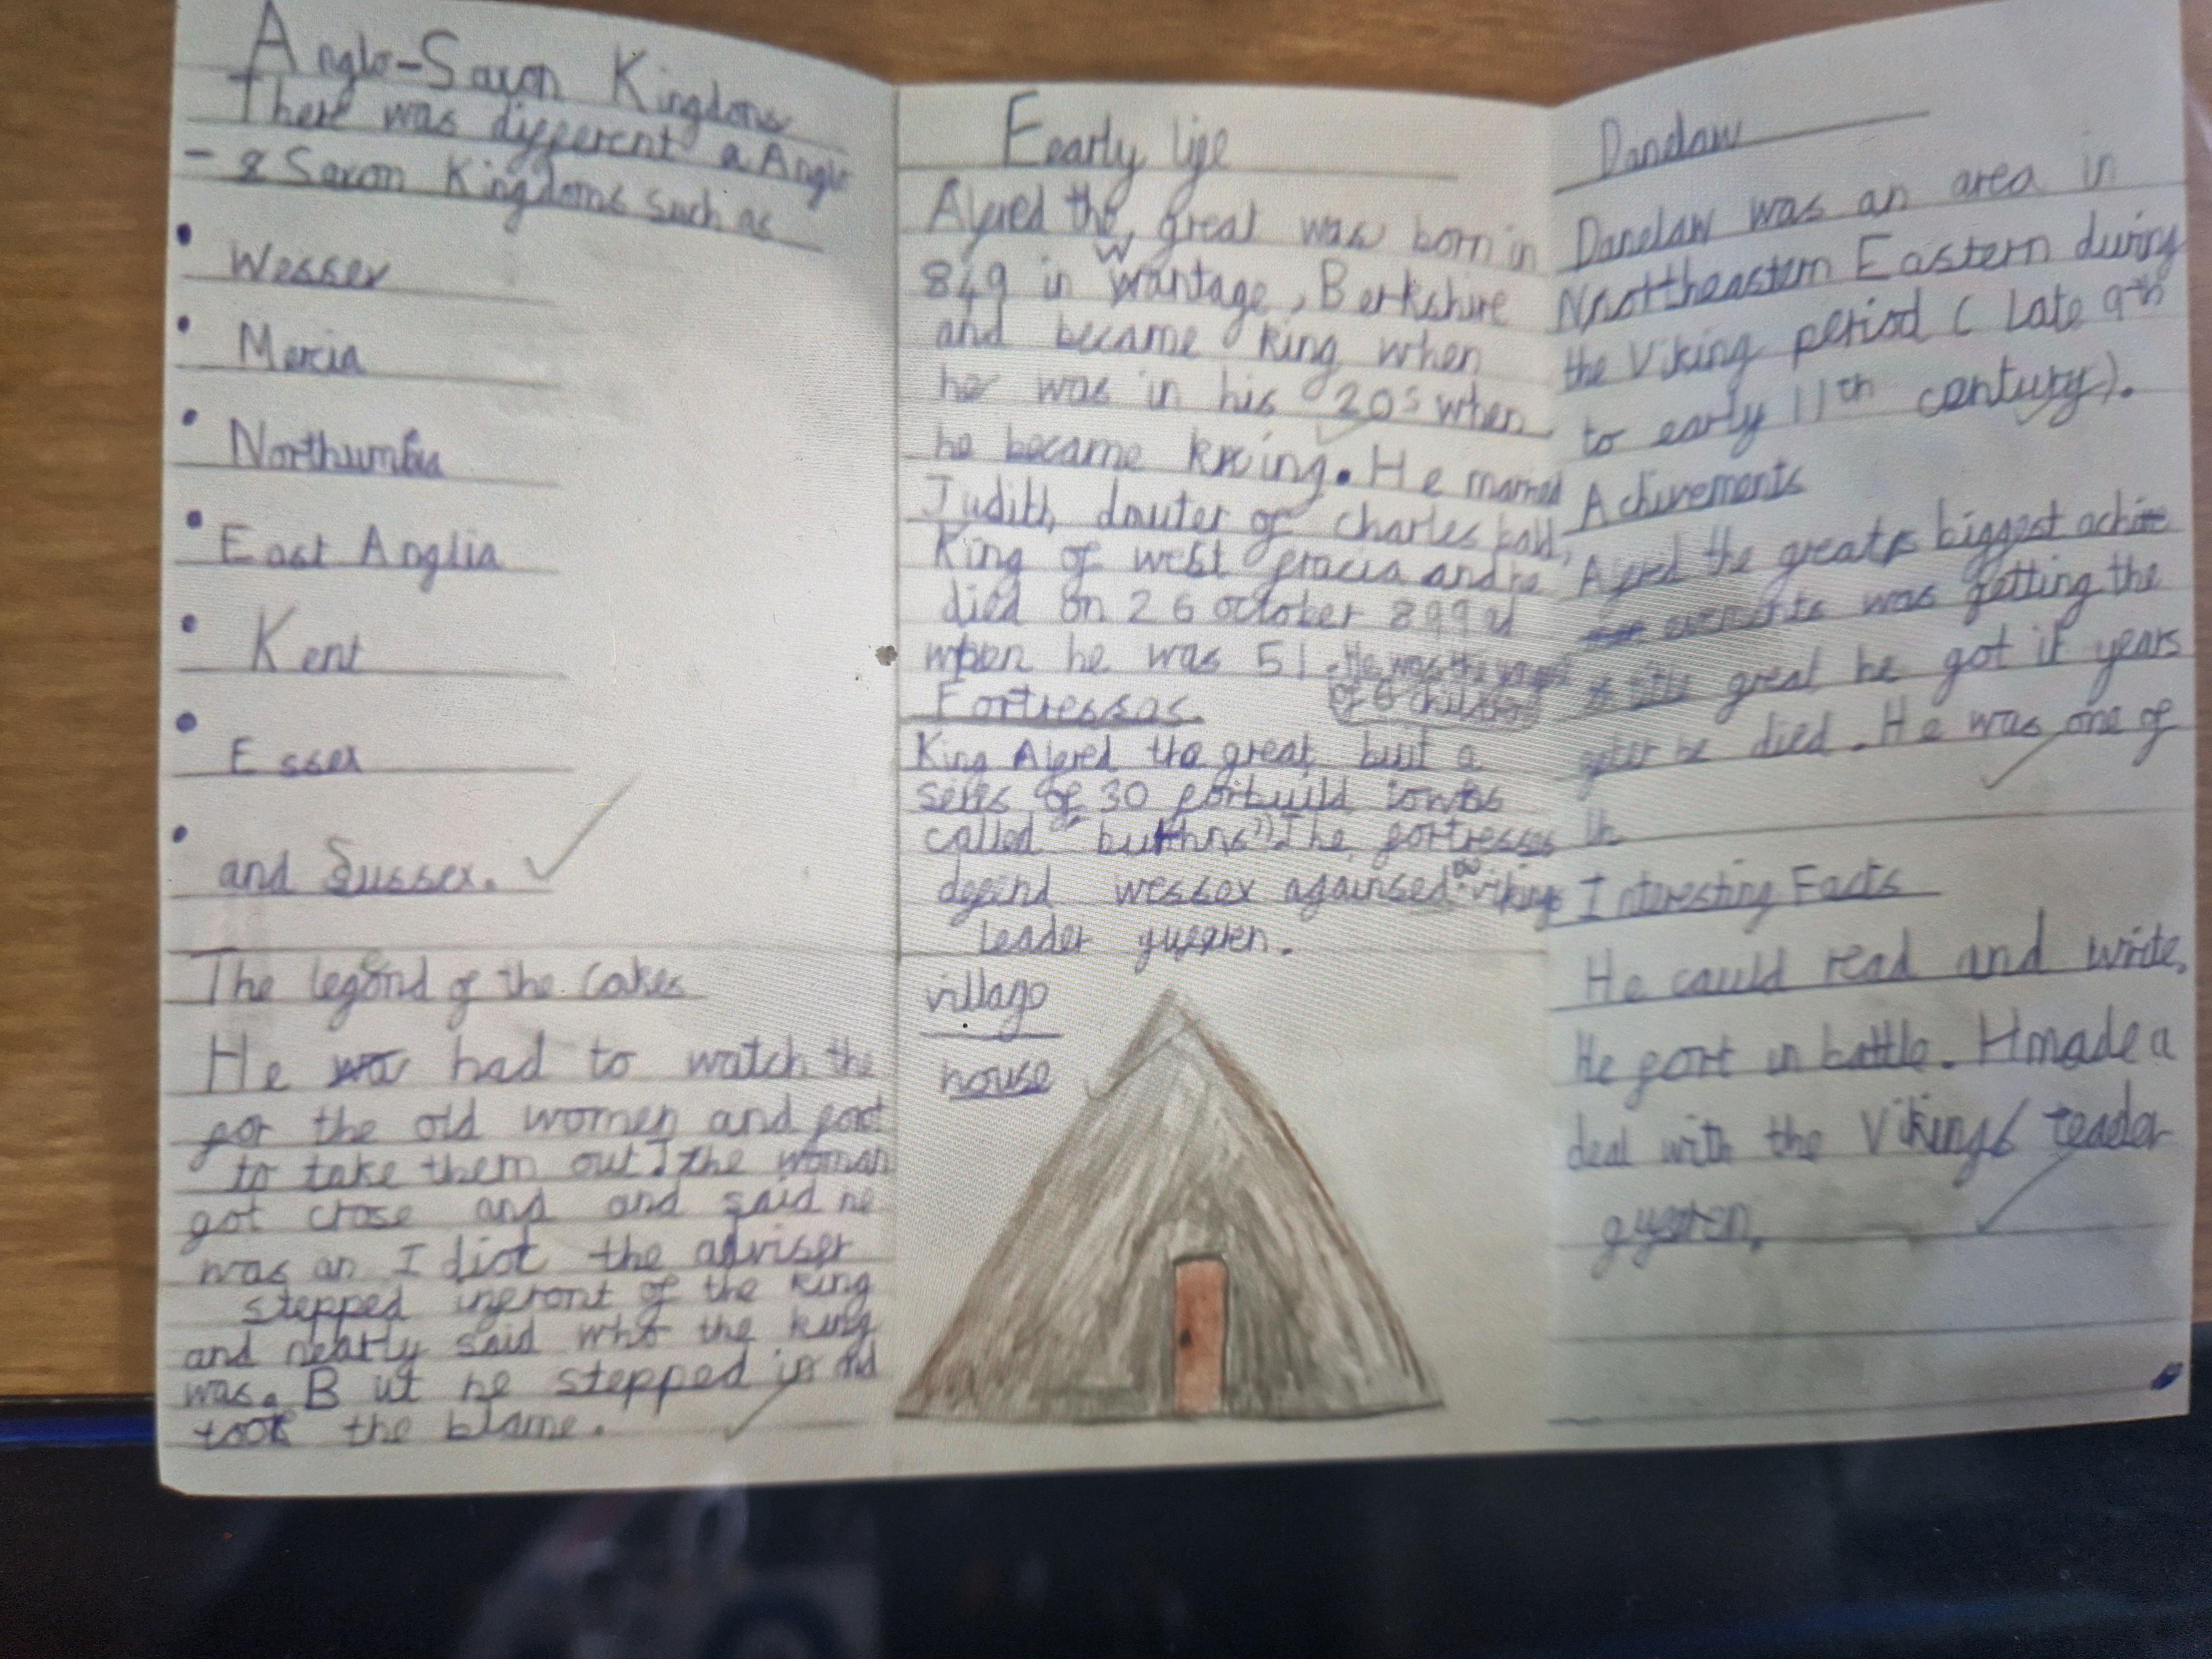 Anglo-Saxon Kingdoms
There was different a Anglo
- & Saxon Kingdoms such as
• Wessex
• Mercia
• Northumbia
• East Anglia
• Kent
• Essex
• and Sussex.
The legend of the Cakes
He wa had to watch the
for the old women and fort
to take them out. the woman
got crose and and said he
was an I diot the adviser
stepped infront of the king
and nearly said who the king
was. But he stepped in and
took the blame.
Eearly life
Alfred the great was born in
849 in wantage, Berkshire
and became king when
he was in his 20s when
he became king. He married
Judith, dauter of charles bald,
King of west fracia and he
died on 26 october 899 ad
when he was 51. He was the
of 6 children
Fortressas
King Alfred the great buit a
seres of 30 forbuild towns
called "burhns". The fortresses
defend wessex againsed viking
leader guthren.
village
house
Danelaw
Danelaw was an area in
Nnottheastern Eastern during
the Viking period ( Late 9th
to early 11th century).
Achivements
Alfred the greats biggest achie
evements was getting the
title great he got it years
after he died. He was one of
th
Interesting Facts
He could read and write.
He fort in battle. H made a
deal with the Vikings leader
guthren.